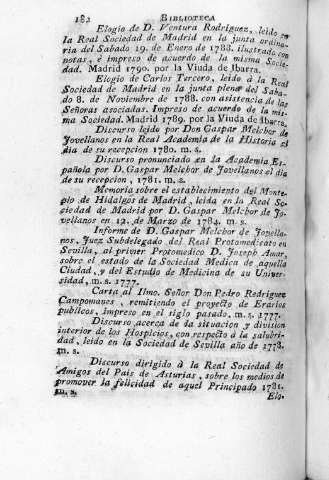 182 BIBLIOTECA
Elogio de D. Ventura Rodriguez, leido en
la Real Sociedad de Madrid en la junta ordina-
ria del Sabado 19. de Enero de 1788. ilustrado con
notas, é impreso de acuerdo de la misma Socie-
dad. Madrid 1790. por la Viuda de Ibarra.
Elogio de Carlos Tercero, leido á la Real
Sociedad de Madrid en la junta plena del Saba-
do 8. de Noviembre de 1788. con asistencia de las
Señoras asociadas. Impreso de acuerdo de la mis-
ma Sociedad. Madrid 1789. por la Viuda de Ibarra.
Discurso leido por Don Gaspar Melchor de
Jovellanos en la Real Academia de la Historia el
dia de su recepcion 1780. m. s.
Discurso pronunciado en la Academia Es-
pañola por D. Gaspar Melchor de Jovellanos el dia
de su recepcion, 1781. m. s.
Memoria sobre el establecimiento del Monte-
pio de Hidalgos de Madrid, leida en la Real So-
ciedad de Madrid por D. Gaspar Melchor de Jo-
vellanos en 12. de Marzo de 1784. m. s.
Informe de D. Gaspar Melchor de Jovella-
nos, Juez Subdelegado del Real Protomedicato en
Sevilla, al primer Protomedico D. Joseph Amar,
sobre el estado de la Sociedad Medica de aquella
Ciudad, y del Estudio de Medicina de su Univer-
sidad, m. s. 1777.
Carta al Ilmo. Señor Don Pedro Rodriguez
Campomanes, remitiendo el proyecto de Erarios
publicos, impreso en el siglo pasado, m. s. 1777.
Discurso acerca de la situacion y division
interior de los Hospicios, con respecto á la salubri-
dad, leido en la Sociedad de Sevilla año de 1778.
m. s.
Discurso dirigido à la Real Sociedad de
Amigos del Pais de Asturias, sobre los medios de
promover la felicidad de aquel Principado 1781.
m. s.
Elo.